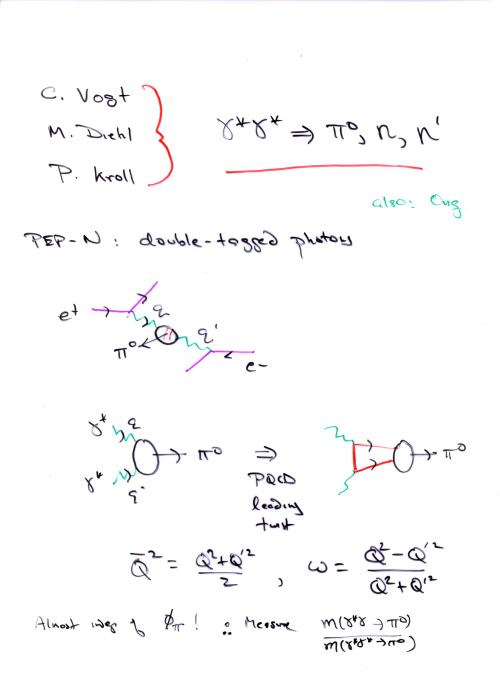 C. Vogt
M. Diehl
P. Kroll
γ*γ* ⇒ π⁰, η, η'
also: Ong
PEP-N : double-tagged photons
e⁺
q
q'
π⁰
e⁻
γ* q
π⁰
⇒
π⁰
γ*
q'
PQCD
leading
twist
Q̄² = (Q²+Q'²)/2 , ω = (Q²-Q'²)/(Q²+Q'²)
Almost indep of ϕπ ! ∴ Measure m(γ*γ→π⁰)/m(γ*γ*→π⁰)